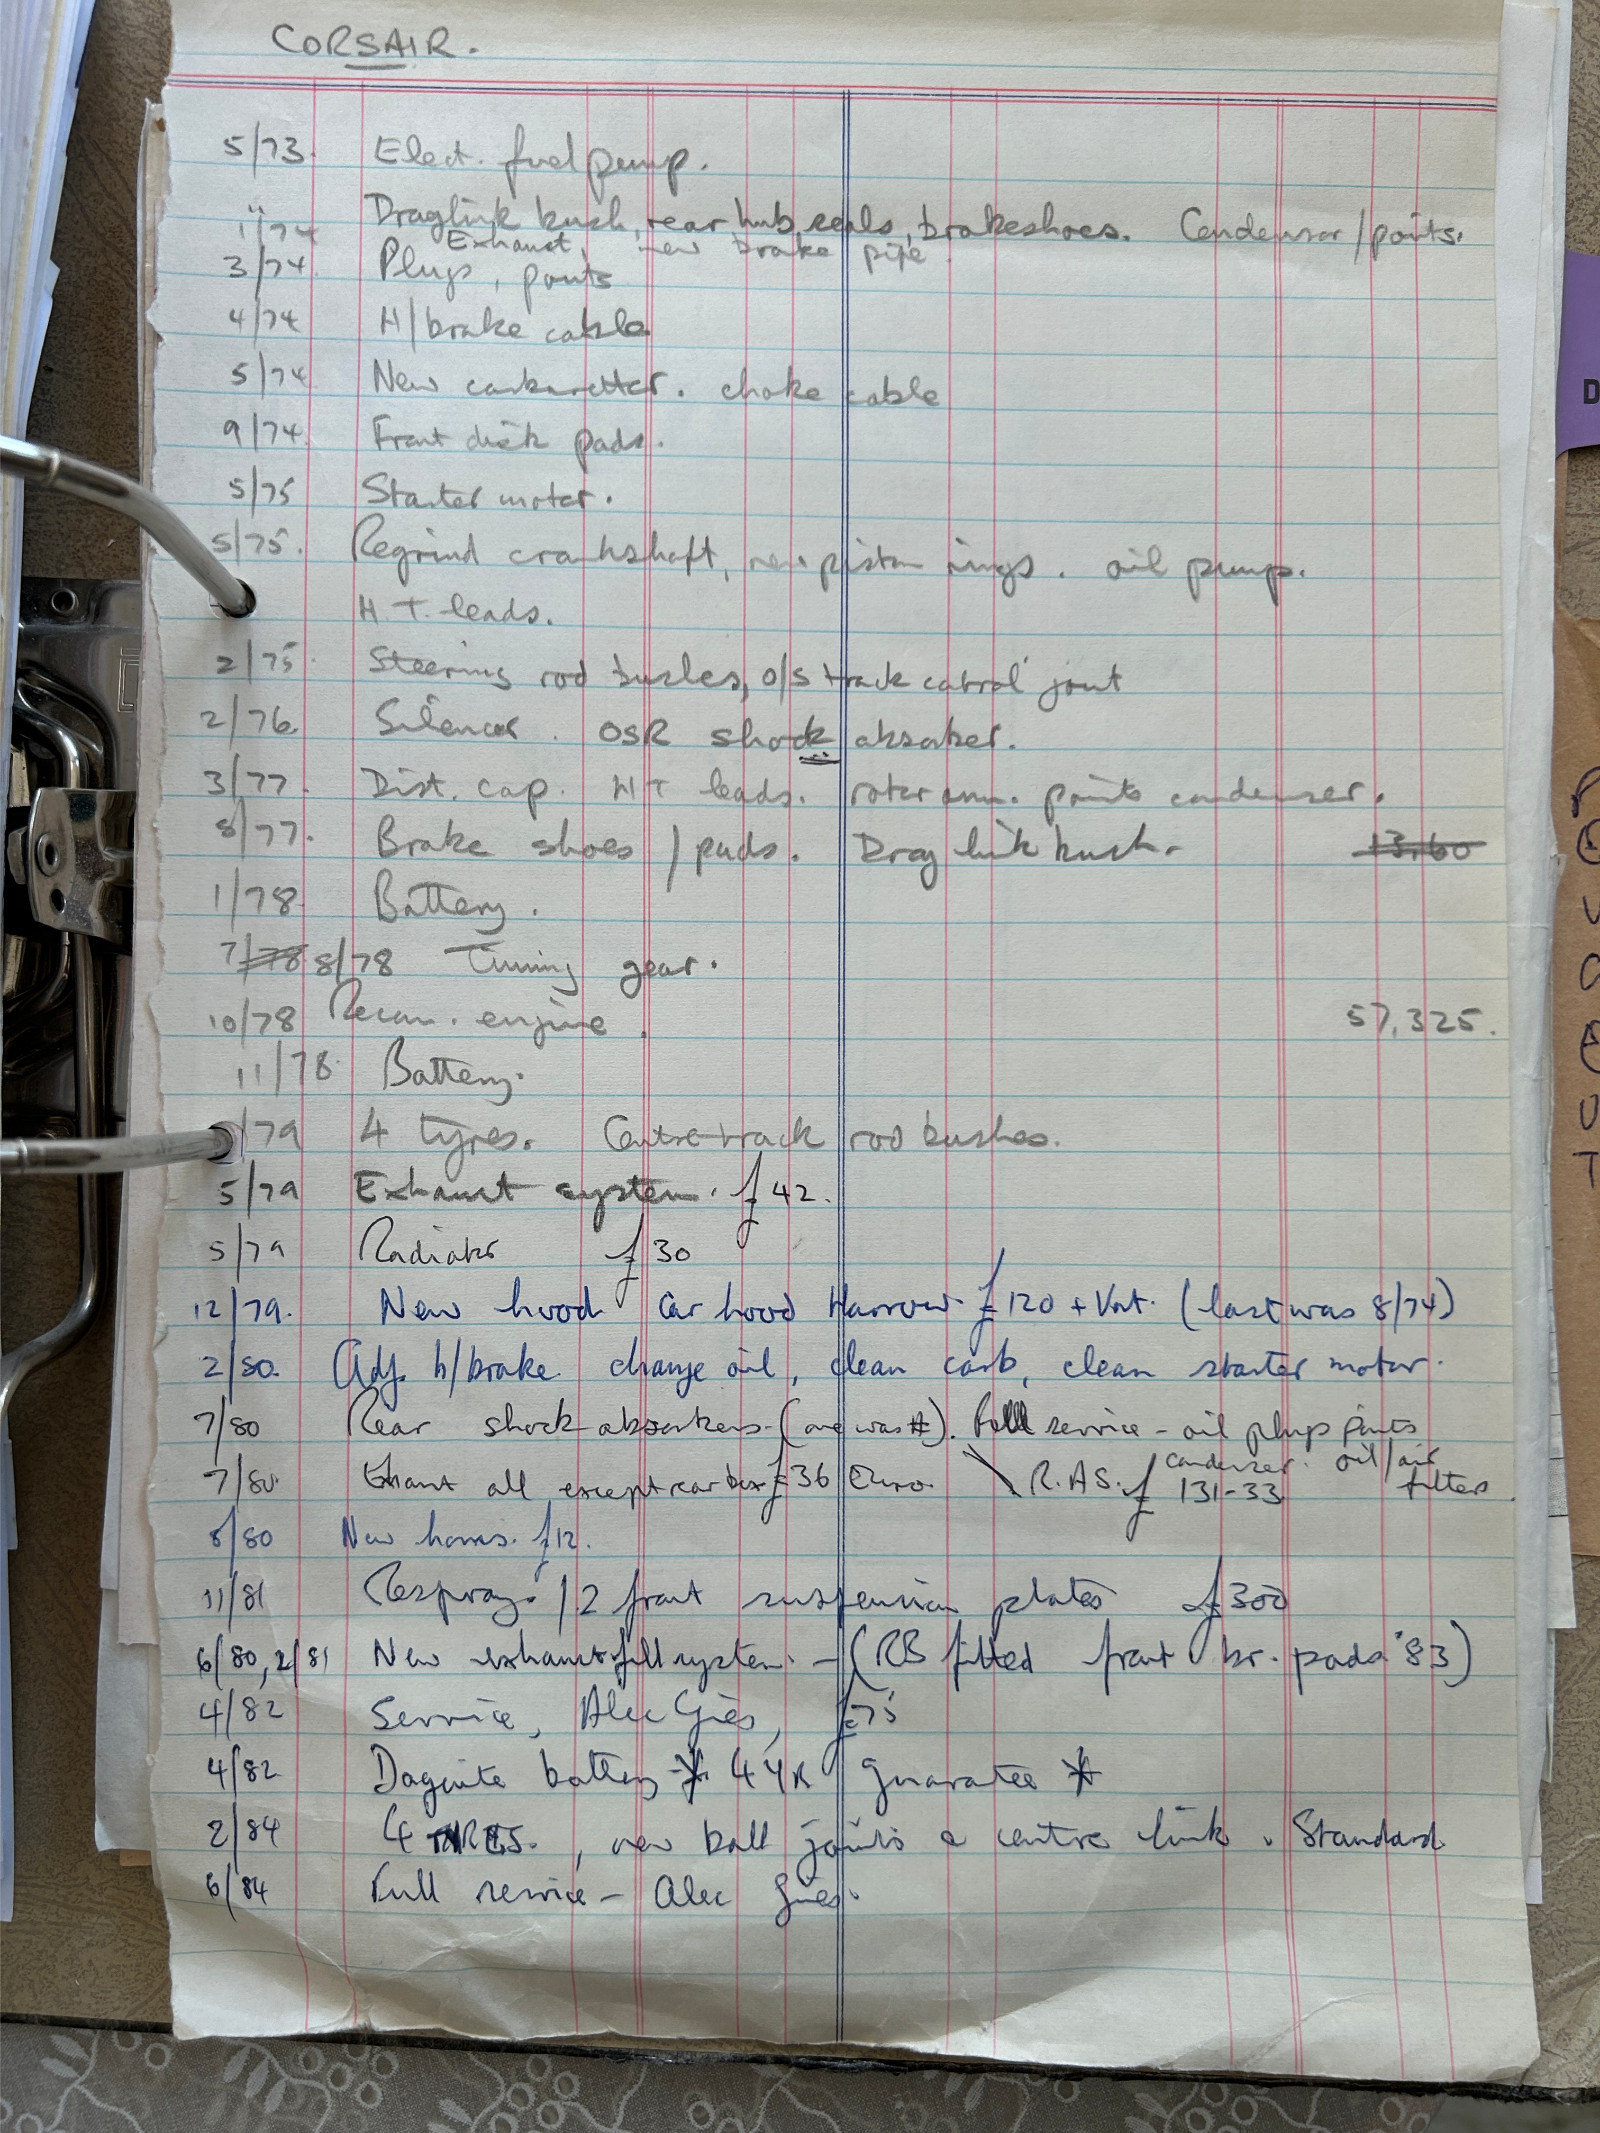 CORSAIR.
5/73. Elect. fuel pump.
1/74 Draglink bush, rear hub, seals, brakeshoes. Condensor/points.
Exhaust, new brake pipe
3/74. Plugs, points
4/74 H/brake cable
5/74 New carburetter. choke cable
9/74. Front disk pads.
5/75 Starter motor.
5/75. Regrind crankshaft, new piston rings. oil pump.
H.T. leads.
2/75. Steering rod bushes, o/s track control joint
2/76. Silencer. OSR shock absorber.
3/77. Dist. cap. HT leads. rotor arm. points condenser.
8/77. Brake shoes / pads. Drag link bush. 13.60
1/78 Battery.
7/78 8/78 Timing gear.
10/78 Recon. engine. 57,325.
11/78. Battery.
/79 4 tyres. Centre track rod bushes.
5/79 Exhaust system. £42.
5/79 Radiator £30
12/79. New hood Car hood Harrow £120 + Vat. (last was 8/74)
2/80. Adj. h/brake. change oil, clean carb, clean starter motor.
7/80 Rear shock absorbers - (one was #). Full service - oil plugs points
condenser. oil/air
7/80. Exhaust all except rear box £36 Euro. \ R.A.S. £131-33 filters.
8/80 New horns. £12.
11/81 Respray. / 2 front suspension plates £300
6/80, 2/81 New exhaust full system. - (RB fitted front br. pads '83)
4/82 Service, Alec Gies, £75
4/82 Dagenite battery * 4 YR guarantee *
2/84 4 TYRES. , new ball joints & centre link. Standard
6/84 Full service - Alec Gies.
D
O
U
T